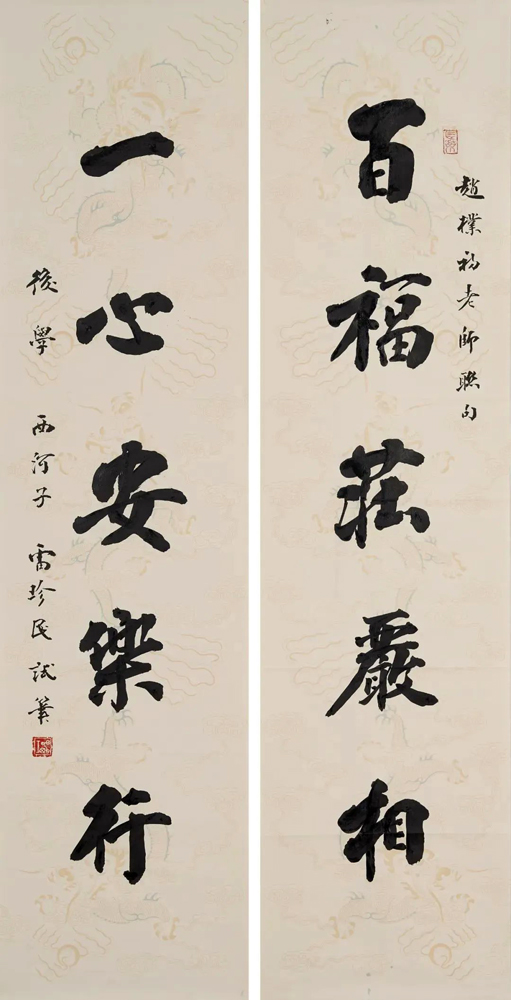 趙樸初老師聯句
百福莊嚴相
一心安樂行
後學 西河子 雷珍民 試筆